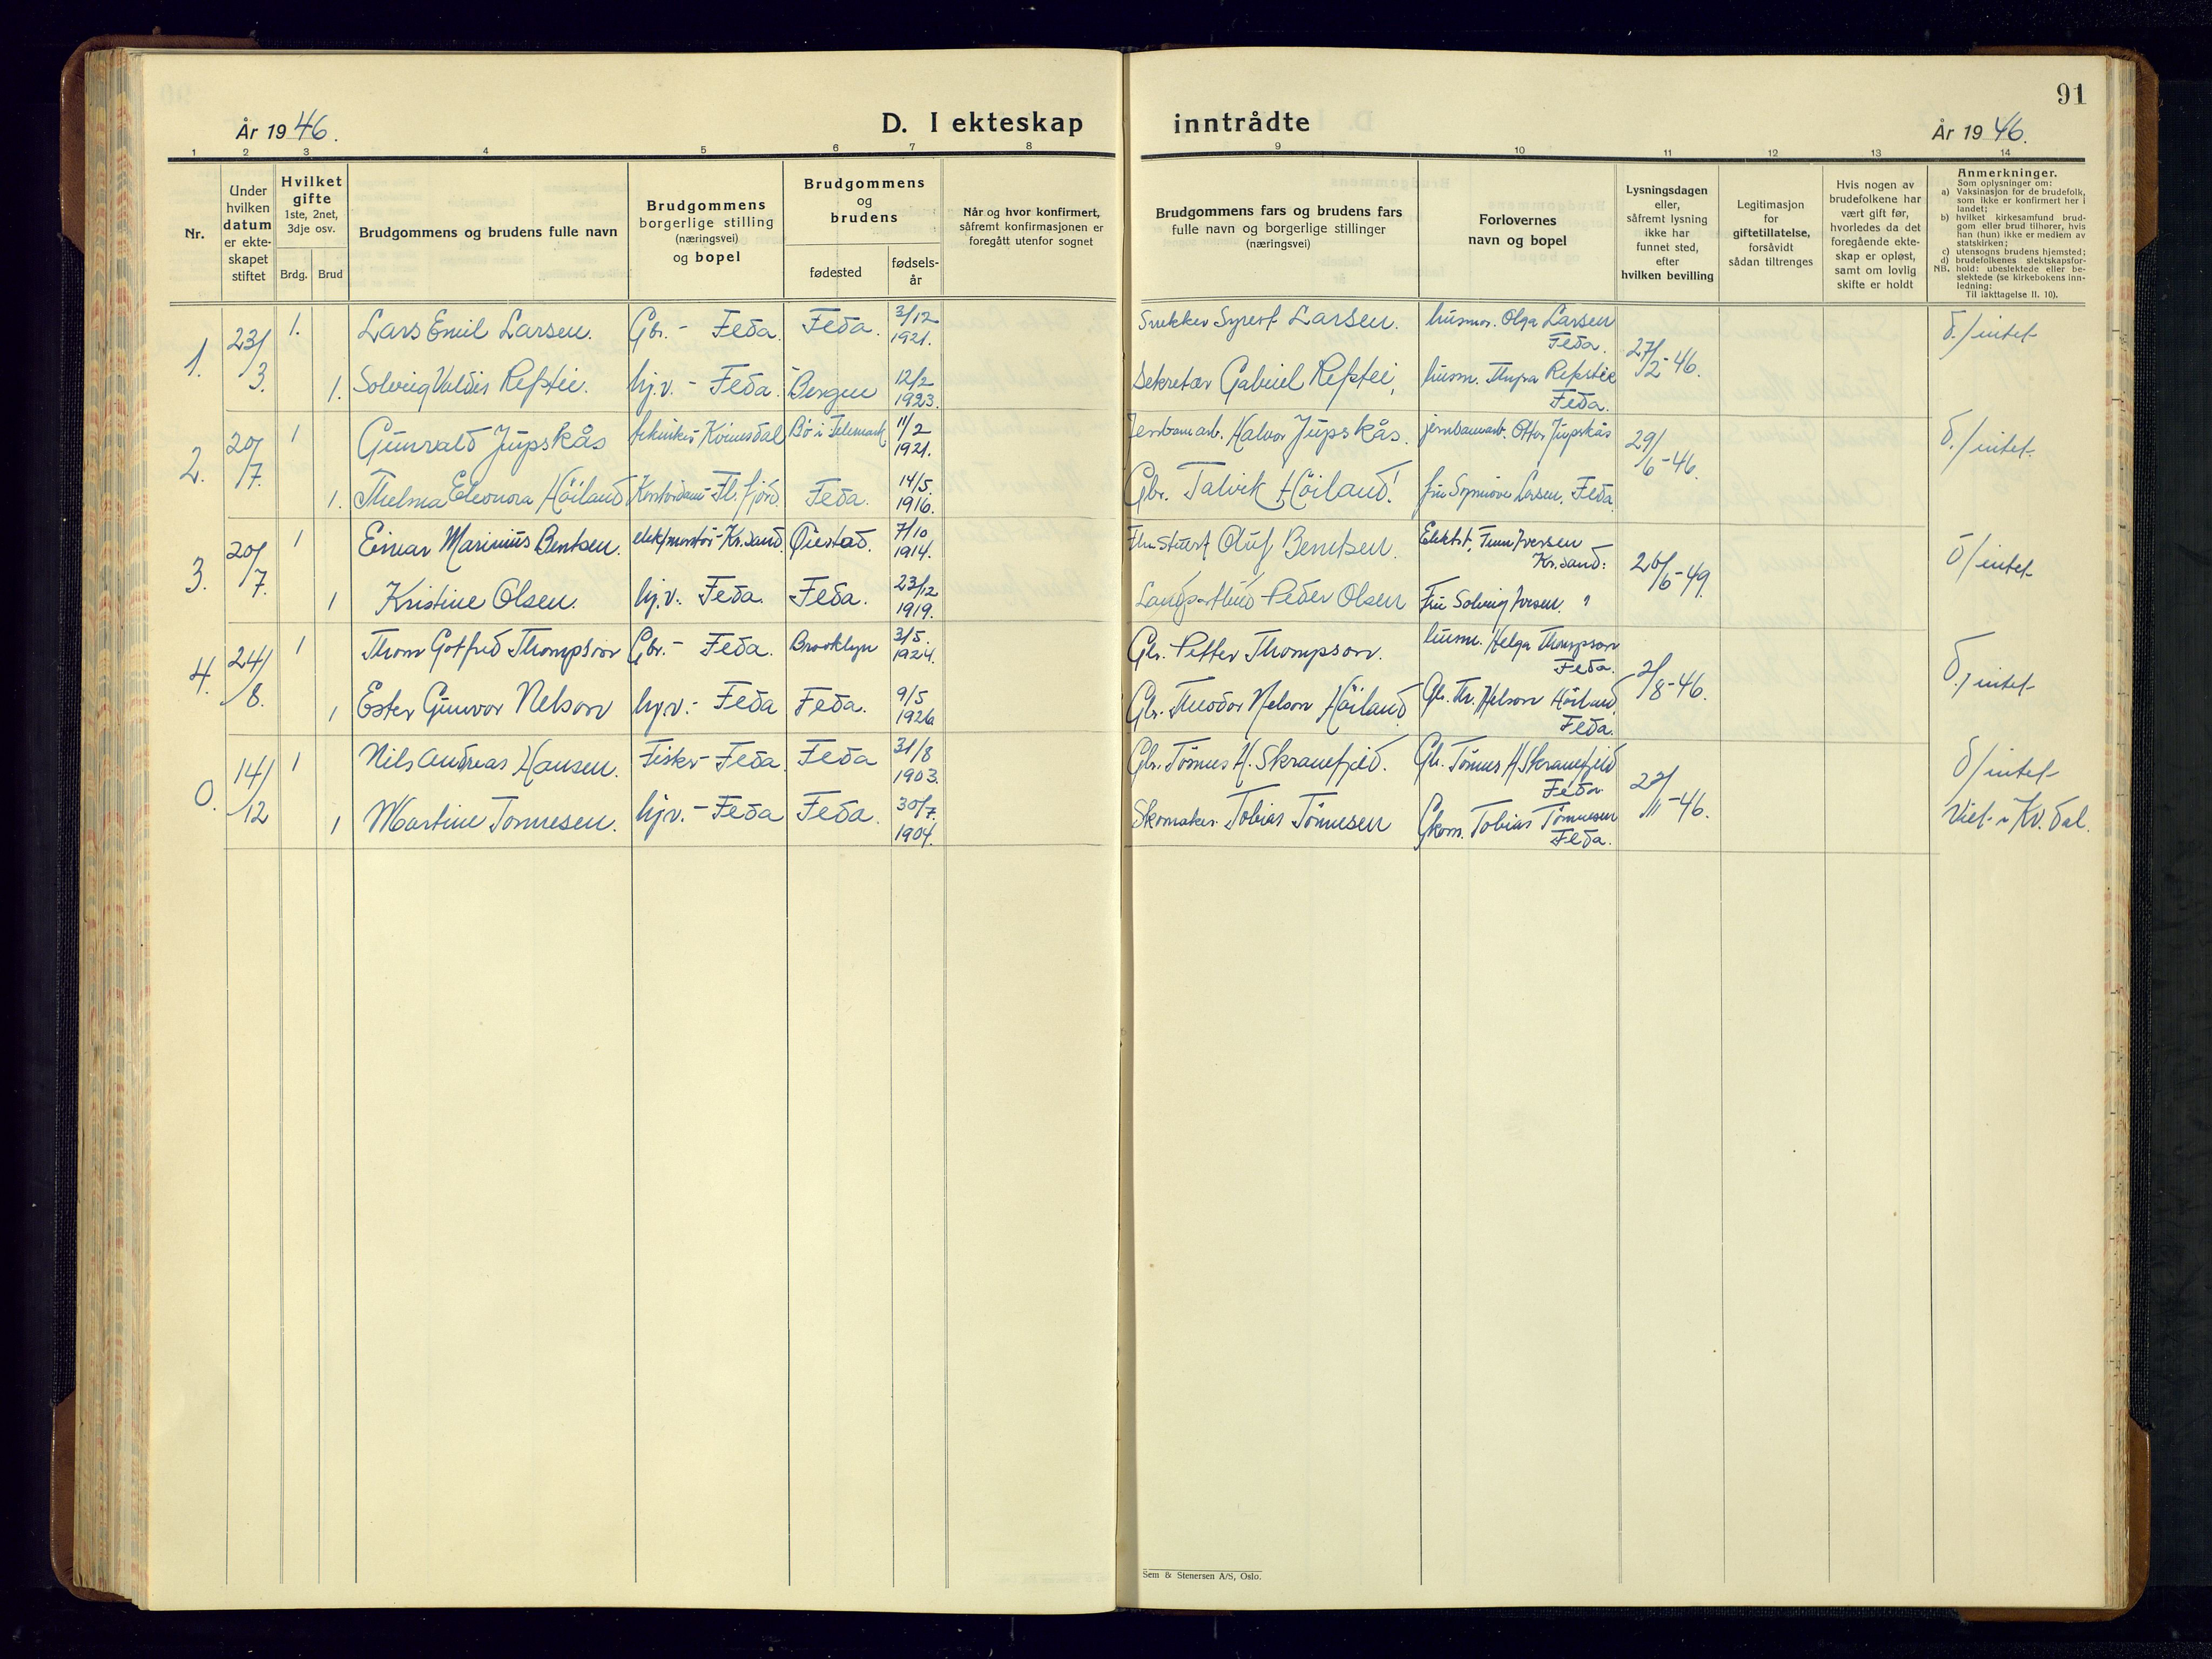 91
År 1946.
D. I ekteskap inntrådte
År 1946.
1 2 3 4 5 6 7 8 9 10 11 12 13 14
Nr.
Under
hvilken
datum
er ekte-
skapet
stiftet
Hvilket
gifte
1ste, 2net,
3dje osv.
Brdg.
Brud
Brudgommens og brudens fulle navn
Brudgommens
borgerlige stilling
(næringsvei)
og bopel
Brudgommens
og
brudens
fødested
fødsels-
år
Når og hvor konfirmert,
såfremt konfirmasjonen er
foregått utenfor sognet
Brudgommens fars og brudens fars
fulle navn og borgerlige stillinger
(næringsvei)
Forlovernes
navn og bopel
Lysningsdagen
eller,
såfremt lysning
ikke har
funnet sted,
efter
hvilken bevilling
Legitimasjon
for
giftetillatelse,
forsåvidt
sådan tiltrenges
Hvis nogen av
brudefolkene har
vært gift før,
hvorledes da det
foregående ekte-
skap er opløst,
samt om lovlig
skifte er holdt
Anmerkninger.
Som oplysninger om:
a) Vaksinasjon for de brudefolk,
som ikke er konfirmert her i
landet;
b) hvilket kirkesamfund brud-
gom eller brud tilhører, hvis
han (hun) ikke er medlem av
statskirken;
c) utensogns brudens hjemsted;
d) brudefolkenes slektskapsfor-
NB. hold: ubeslektede eller be-
slektede (se kirkebokens inn-
ledning:
Til iakttagelse II. 10).
1. 23/3. 1. Lars Emil Larsen. Gbr. - Feda. Feda. 3/12 1921. Snekker Syvert Larsen. husmor. Olga Larsen Feda. 27/2-46. d./intet
1. Solveig Valdis Refstie. hj.v. - Feda. Bergen 12/2 1923. Sekretær Gabriel Refstei, husm. Thyra Refstie Feda.
2. 20/7. 1 Gunvald Jupskås tekniker Kvinesdal Bø i Telemark 11/2 1921. Jernbanearb. Halvor Jupskås. jernbanearb. Otto Jupskås 29/6-46. d./intet
1. Thelma Eleonora Höiland Kontordame - Fl.fjord. Feda. 14/5. 1916. Gbr. Talvik Höiland. fru Larsen. Feda
3. 20/7. 1 Einar Marinius Bentsen. elektmontør - Kr.sand. Øiestad. 7/10 1914. Oluf Berntsen. Iversen Kr.sand. 26/6-49. d/intet
1 Kristine Olsen. hj.v. Feda. Feda. 23/12 1919. Peder Olsen Fru Solveig Iversen. "
4. 24/8. 1 Thom Gotfred Thompson Gbr. - Feda. Brooklyn 3/5. 1924. Gbr. Petter Thompson. husm. Helga Thompson Feda. 2/8-46. d./intet
1 Ester Gunvor Nelson hj.v. - Feda Feda. 9/5 1926 Gbr. Theodor Nelson Höiland Gbr. Th. Nelson Höiland Feda.
0. 14/12 1 Nils Andreas Hansen. Fisker - Feda. Feda 31/8 1903. Gbr. Tönnes H. Skranefjeld. Gbr. Tönnes H Skranefjeld Feda 22/11-46. d/intet
1 Martine Tönnesen. hj.v. - Feda Feda. 30/7. 1904. Skomaker Tobias Tönnesen Skom. Tobias Tönnesen Feda. Viet i Kv.dal.
Sem & Stenersen A/S, Oslo.